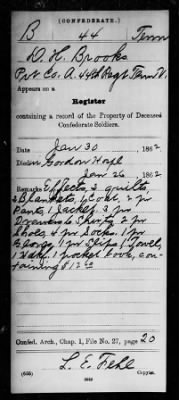 (CONFEDERATE.)
B 44 Tenn
D. H. Brooks
Pvt Co. A. 44th Regt Tenn V.
Appears on a
Register
containing a record of the Property of Deceased
Confederate Soldiers.
Date Jan 30, 1862
Died in Gordon Hosp
Jan 26 1862
Remarks Effects, 2 quilts,
2 Blankets, 1 Coat. 2 pr
Pants, 1 Jacket. 3 pr
Drawers 2 Shirts, 2 pr
Shoes, 4 pr Socks, 1 pr
1 pr Slips 1 Towel,
1 Hdkf. 1 pocket book, con-
taining $12
Confed. Arch., Chap. 1, File No. 27, page 20
L. E. Fehl
(635) Copyist.